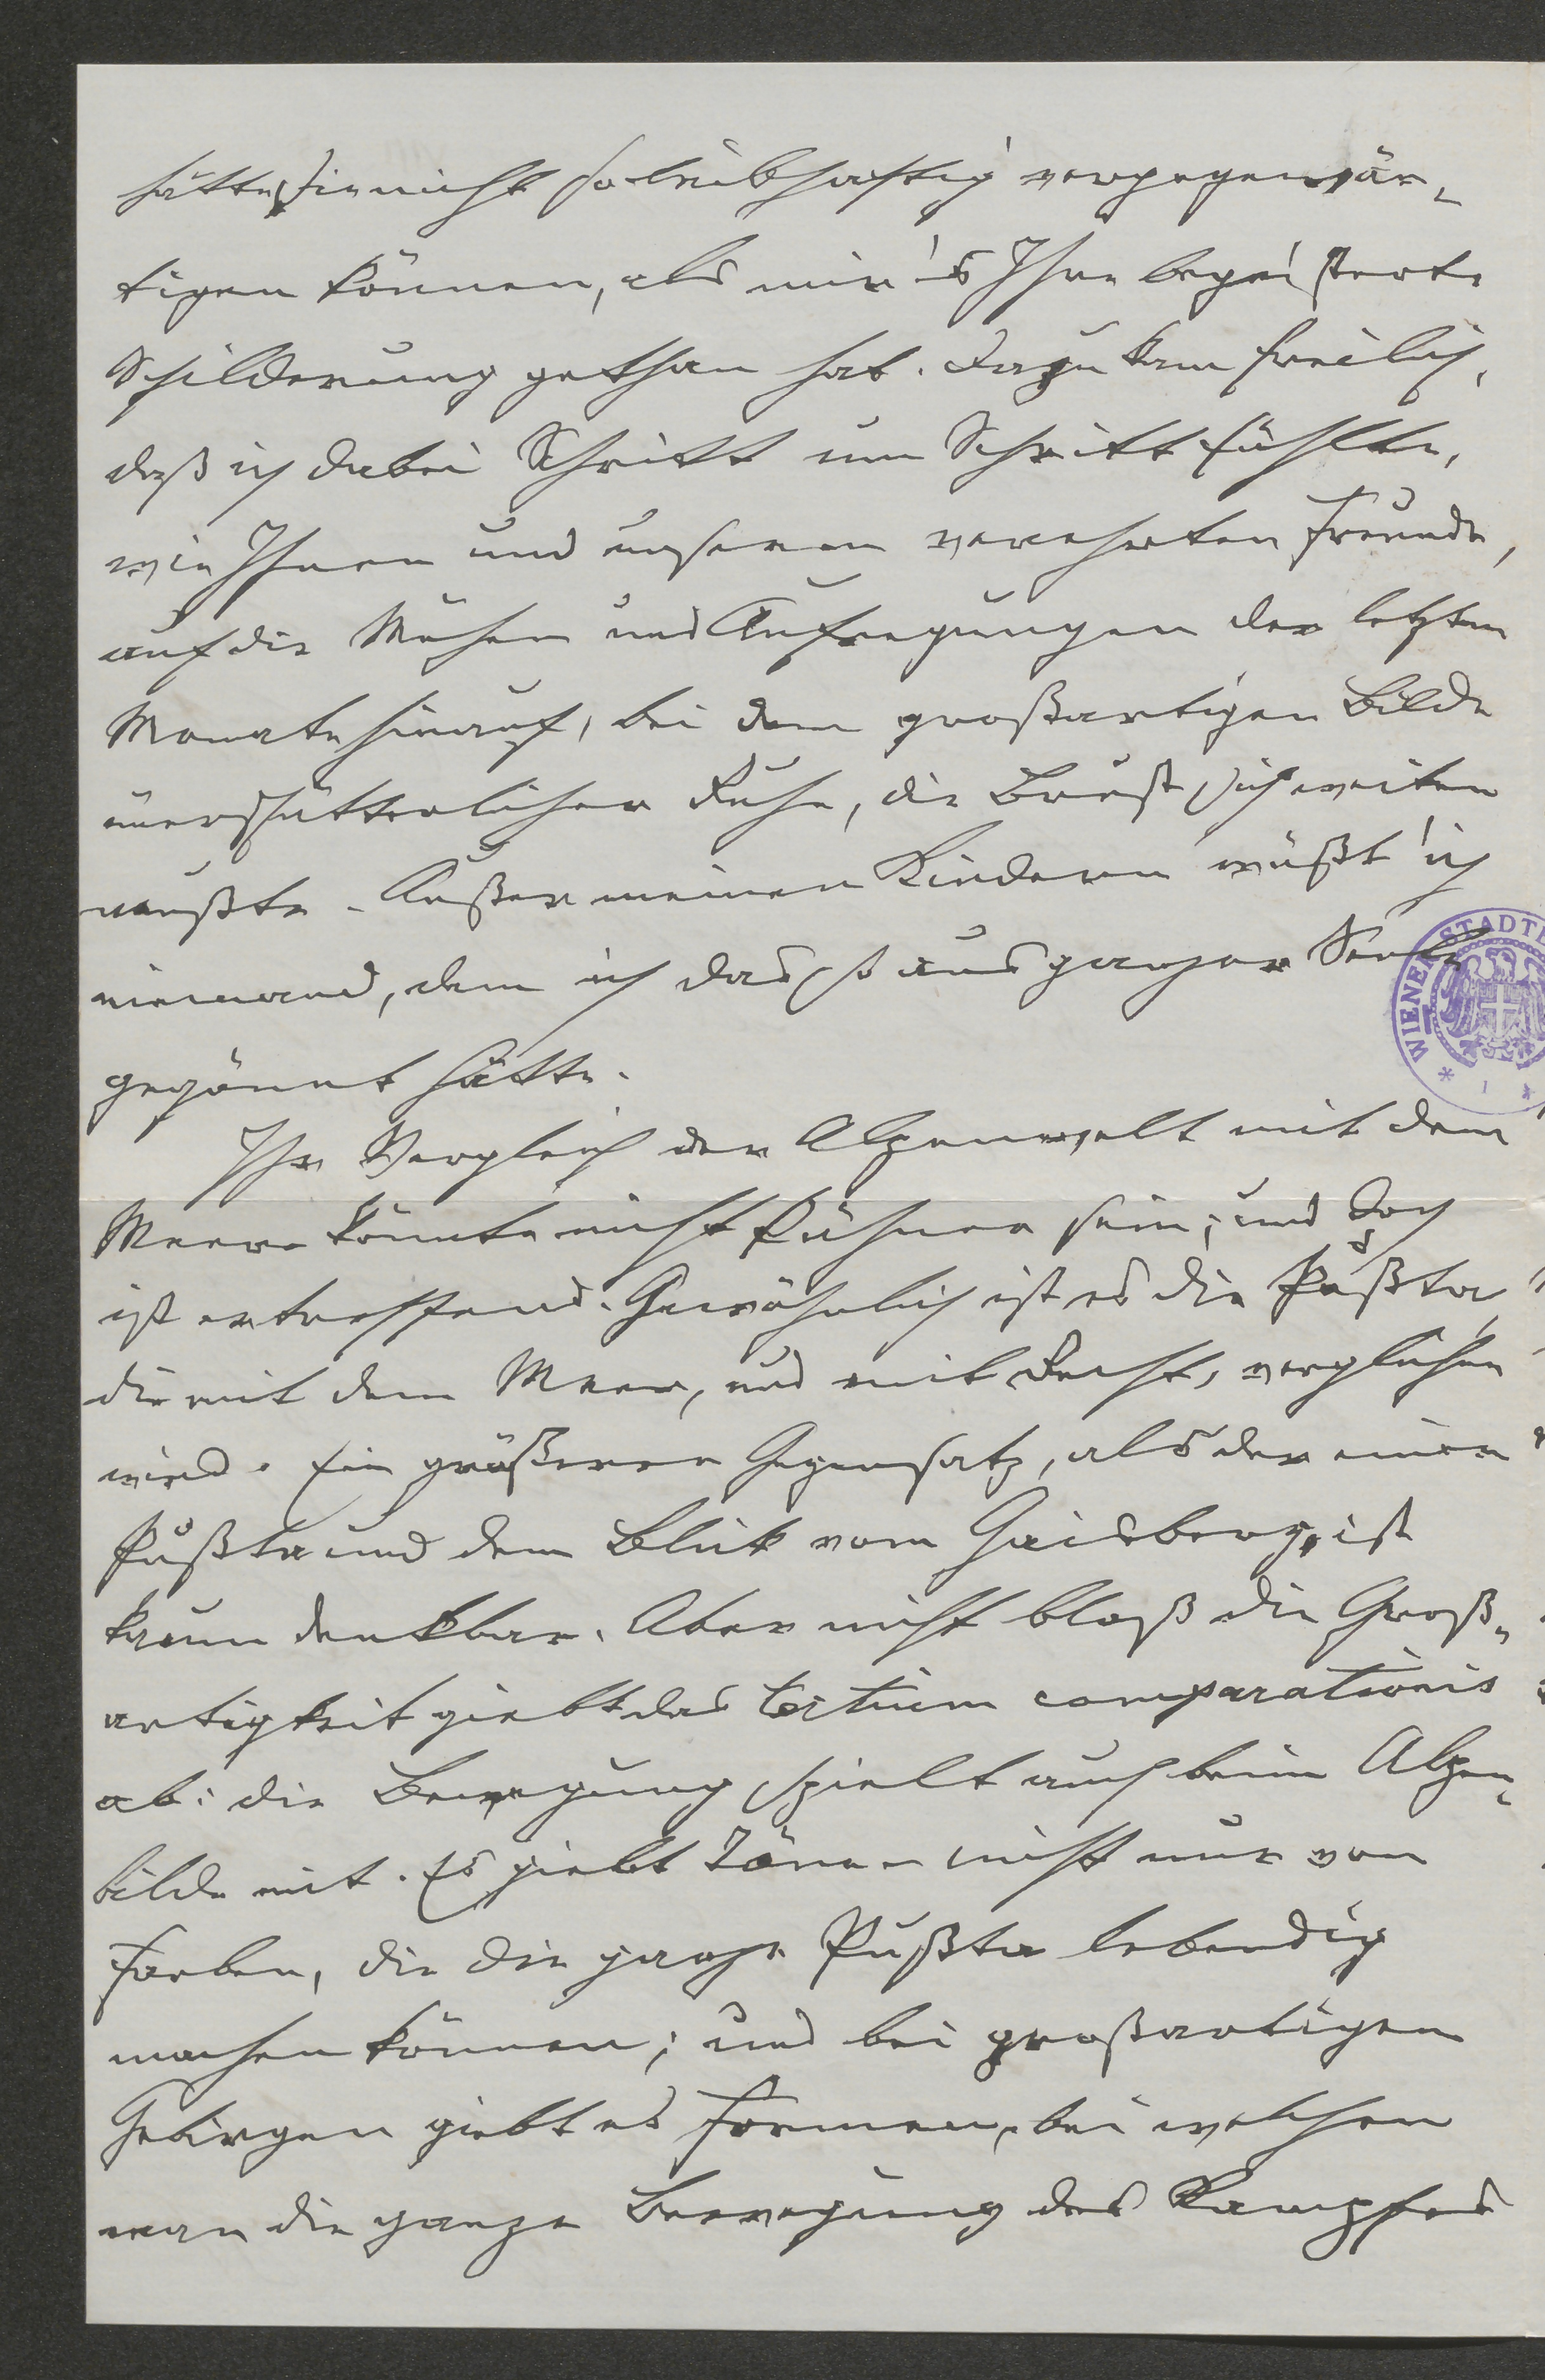 hätte sie nicht so leibhaftig vergegenwär-
tigen können, als mir's Ihre begeisterte
Schilderung gethan hat. Dazu kam freilich,
daß ich dabei Schritt um Schritt fühlte,
wie Ihnen und unserem verehrten Freunde,
auf die Mühen und Aufregungen der letzten
Monate hinauf, bei dem großartigen Bilde
unerschütterlicher Ruhe, die Brust sich weiten
mußte. Außer meinen Kindern wüßt' ich
niemand, dem ich das so aus ganzer Seele
gegönnt hätte.
Ihr Vergleich der Alpenwelt mit dem
Meere könnte nicht kühner sein; und doch
ist er treffend. Gewöhnlich ist es die Pußta,
die mit dem Meer, und mit Recht, verglichen
wird. Ein größerer Gegensatz, als der einer
Pußta und dem Blick vom Gaisberg, ist
kaum denkbar. Aber nicht bloß die Groß-
artigkeit giebt das tertium comparationis
ab: die Bewegung spielt auch beim Alpen-
bilde mit. Es giebt Töne nicht nur von
Farben, die die ganze Pußta lebendig
machen können; und bei großartigen
Gebirgen giebt es Formen, bei welchen
man die ganze Bewegung des Kampfes
WIENER STADT
* 1 *